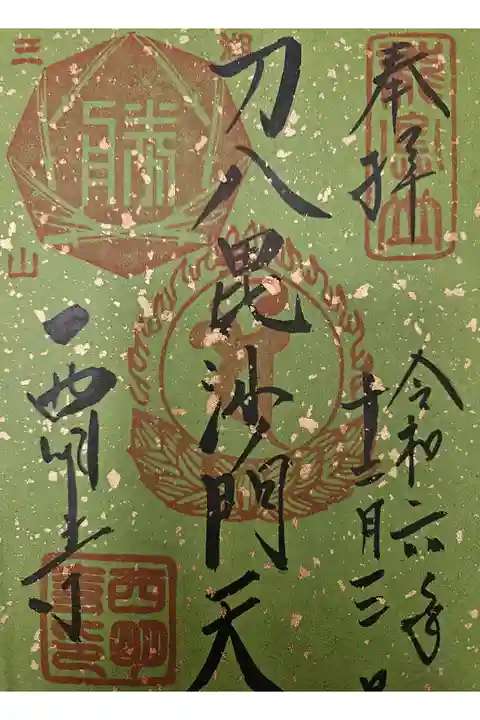 奉拝
令和六年
十二月三日
刀八毘沙門天
西明寺
龍應山
三
山
西明